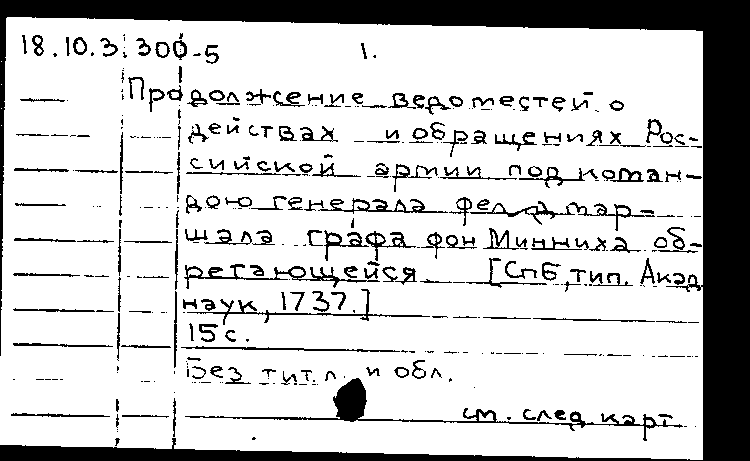 18.10.3.300-5 1.
Продолжение ведоместей о
действах и обращениях Рос-
сийской армии под коман-
дою генерала фелдмар-
шала графа фон Минниха об-
ретающейся [Спб, тип. Акад
наук, 1737.]
15 с.
Без тит. л. и обл.
см. след. карт.